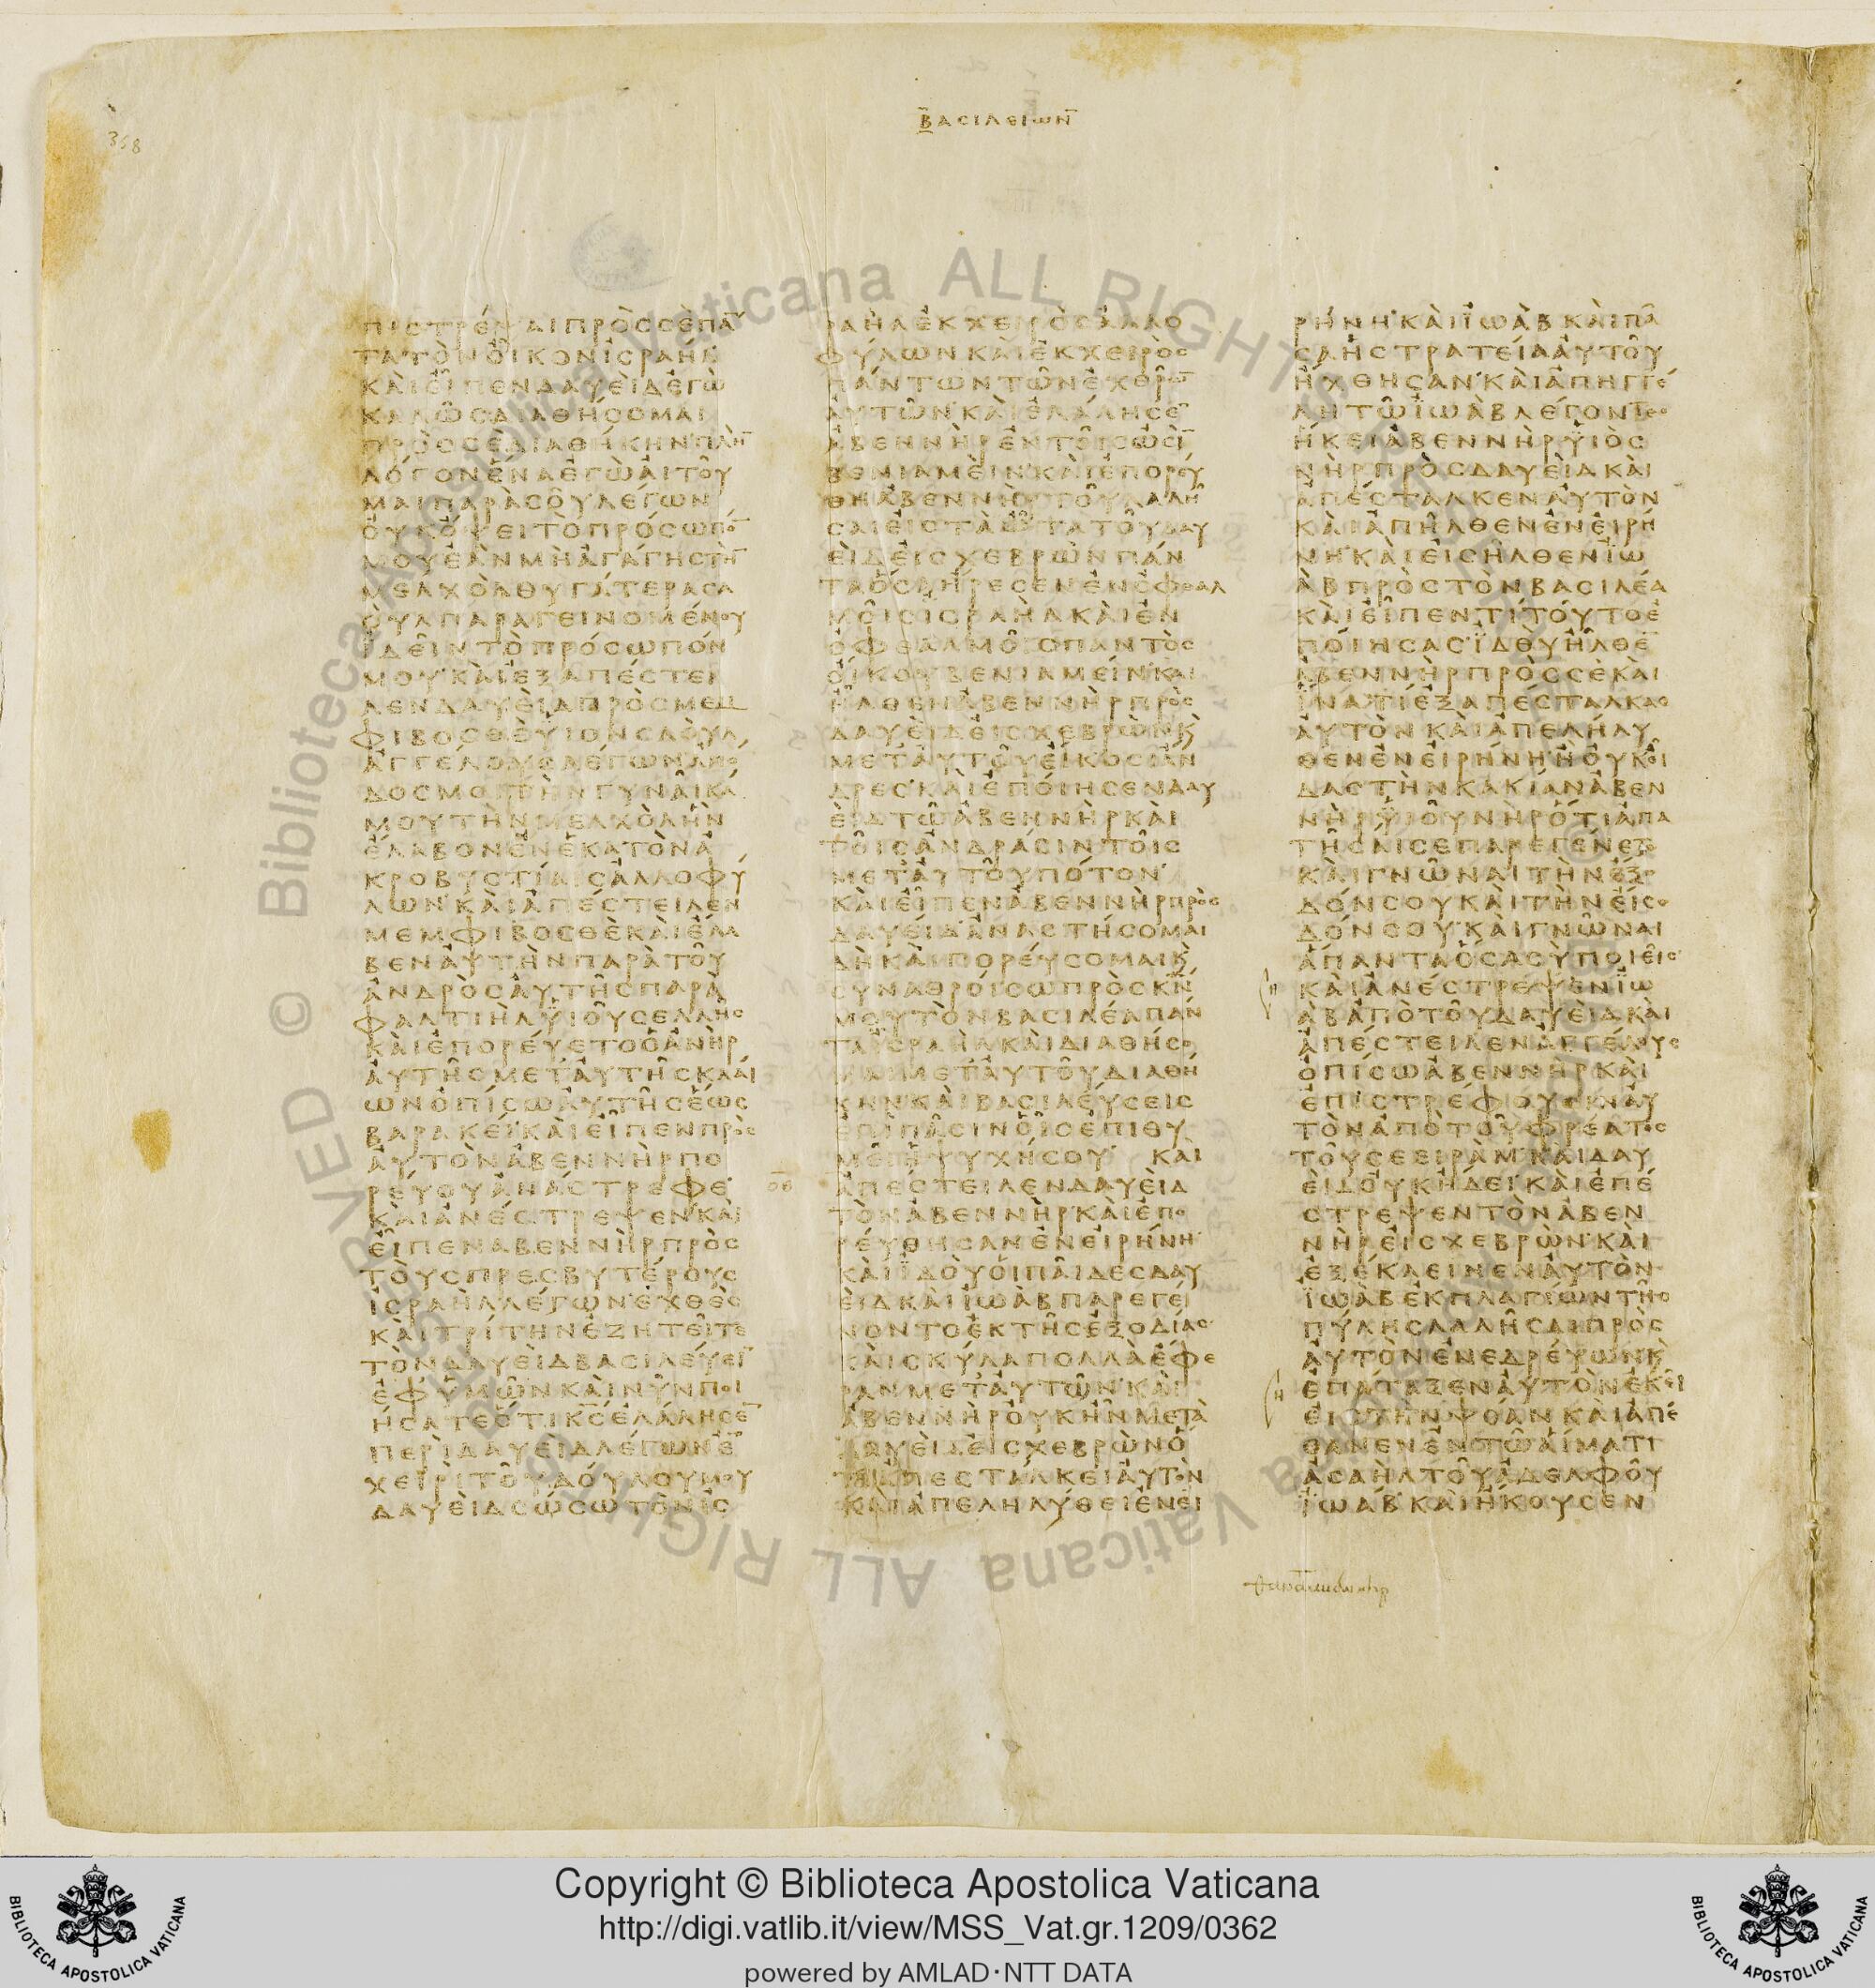 358
ΒΑΣΙΛΕΙΩΝ
ΠΙΣΤΡΕΨΑΙ ΠΡΟΣ ΣΕ ΠΑ̅
ΤΑ ΤΟΝ ΟΙΚΟΝ ΙΣΡΑΗΛ
ΚΑΙ ΕΙΠΕΝ ΔΑΥΕΙΔ ΕΓΩ
ΚΑΛΩΣ ΔΙΑΘΗΣΟΜΑΙ
ΠΡΟΣ ΣΕ ΔΙΑΘΗΚΗΝ ΠΛΗ̅
ΛΟΓΟΝ ΕΝΑ ΕΓΩ ΑΙΤΟΥ
ΜΑΙ ΠΑΡΑ ΣΟΥ ΛΕΓΩΝ
ΟΥΚ ΟΨΕΙ ΤΟ ΠΡΟΣΩΠΟ̅
ΜΟΥ ΕΑΝ ΜΗ ΑΓΑΓΗΣ ΤΗ̅
ΜΕΛΧΟΛ ΘΥΓΑΤΕΡΑ ΣΑ
ΟΥΛ ΠΑΡΑΓΕΙΝΟΜΕΝΟΥ
ΪΔΕΙΝ ΤΟ ΠΡΟΣΩΠΟΝ
ΜΟΥ ΚΑΙ ΕΞΑΠΕΣΤΕΙ
ΛΕΝ ΔΑΥΕΙΔ ΠΡΟΣ ΜΕΜ
ΦΙΒΟΣΘΕ ΥΙΟΝ ΣΑΟΥΛ
ΑΓΓΕΛΟΥΣ ΛΕΓΩΝ ΑΠΟ
ΔΟΣ ΜΟΙ ΤΗΝ ΓΥΝΑΙΚΑ
ΜΟΥ ΤΗΝ ΜΕΛΧΟΛ ΗΝ
ΕΛΑΒΟΝ ΕΝ ΕΚΑΤΟΝ Α
ΚΡΟΒΥΣΤΙΑΙΣ ΑΛΛΟΦΥ
ΛΩΝ ΚΑΙ ΑΠΕΣΤΕΙΛΕΝ
ΜΕΜΦΙΒΟΣΘΕ ΚΑΙ ΕΛΑ
ΒΕΝ ΑΥΤΗΝ ΠΑΡΑ ΤΟΥ
ΑΝΔΡΟΣ ΑΥΤΗΣ ΠΑΡΑ
ΦΑΛΤΙΗΛ ΥΙΟΥ ΣΕΛΛΗΣ
ΚΑΙ ΕΠΟΡΕΥΕΤΟ Ο ΑΝΗΡ
ΑΥΤΗΣ ΜΕΤ ΑΥΤΗΣ ΚΛΑΙ
ΩΝ ΟΠΙΣΩ ΑΥΤΗΣ ΕΩΣ
ΒΑΡΑΚΕΙ ΚΑΙ ΕΙΠΕΝ ΠΡΟΣ
ΑΥΤΟΝ ΑΒΕΝΝΗΡ ΠΟ
ΡΕΥΟΥ ΑΝΑΣΤΡΕΦΕ
ΚΑΙ ΑΝΕΣΤΡΕΨΕΝ ΚΑΙ
ΕΙΠΕΝ ΑΒΕΝΝΗΡ ΠΡΟΣ
ΤΟΥΣ ΠΡΕΣΒΥΤΕΡΟΥΣ
ΙΣΡΑΗΛ ΛΕΓΩΝ ΕΧΘΕΣ
ΚΑΙ ΤΡΙΤΗΝ ΕΖΗΤΕΙΤΕ
ΤΟΝ ΔΑΥΕΙΔ ΒΑΣΙΛΕΥΕΙ̅
ΕΦ ΥΜΩΝ ΚΑΙ ΝΥΝ ΠΟΙ
ΗΣΑΤΕ ΟΤΙ Κ̅Σ̅ ΕΛΑΛΗΣΕ̅
ΠΕΡΙ ΔΑΥΕΙΔ ΛΕΓΩΝ Ε̅
ΧΕΙΡΙ ΤΟΥ ΔΟΥΛΟΥ ΜΟΥ
ΔΑΥΕΙΔ ΣΩΣΩ ΤΟΝ ΙΣ
ΡΑΗΛ ΕΚ ΧΕΙΡΟΣ ΑΛΛΟ
ΦΥΛΩΝ ΚΑΙ ΕΚ ΧΕΙΡΟΣ
ΠΑΝΤΩΝ ΤΩΝ ΕΧΘΡΩ̅
ΑΥΤΩΝ ΚΑΙ ΕΛΑΛΗΣΕ̅
ΑΒΕΝΝΗΡ ΕΝ ΤΟΙΣ ΩΣΙ̅
ΒΕΝΙΑΜΕΙΝ ΚΑΙ ΕΠΟΡΕΥ
ΘΗ ΑΒΕΝΝΗΡ ΤΟΥ ΛΑΛΗ
ΣΑΙ ΕΙΣ ΤΑ ΩΤΑ ΤΟΥ ΔΑΥ
ΕΙΔ ΕΙΣ ΧΕΒΡΩΝ ΠΑΝ
ΤΑ ΟΣΑ ΗΡΕΣΕΝ ΕΝ ΟΦΘΑΛ
ΜΟΙΣ ΙΣΡΑΗΛ ΚΑΙ ΕΝ
ΟΦΘΑΛΜΟΙΣ ΠΑΝΤΟΣ
ΟΙΚΟΥ ΒΕΝΙΑΜΕΙΝ ΚΑΙ
ΗΛΘΕΝ ΑΒΕΝΝΗΡ ΠΡΟΣ
ΔΑΥΕΙΔ ΕΙΣ ΧΕΒΡΩΝ Κ
ΜΕΤ ΑΥΤΟΥ ΕΙΚΟΣΙ ΑΝ
ΔΡΕΣ ΚΑΙ ΕΠΟΙΗΣΕΝ ΔΑΥ
ΕΙΔ ΤΩ ΑΒΕΝΝΗΡ ΚΑΙ
ΤΟΙΣ ΑΝΔΡΑΣΙΝ ΤΟΙΣ
ΜΕΤ ΑΥΤΟΥ ΠΟΤΟΝ
ΚΑΙ ΕΙΠΕΝ ΑΒΕΝΝΗΡ ΠΡΟΣ
ΔΑΥΕΙΔ ΑΝΑΣΤΗΣΟΜΑΙ
ΔΗ ΚΑΙ ΠΟΡΕΥΣΟΜΑΙ Κ
ΣΥΝΑΘΡΟΙΣΩ ΠΡΟΣ Κ̅Ν̅
ΜΟΥ ΤΟΝ ΒΑΣΙΛΕΑ ΠΑΝ
ΤΑ ΙΣΡΑΗΛ ΚΑΙ ΔΙΑΘΗΣΟ
ΜΑΙ ΜΕΤ ΑΥΤΟΥ ΔΙΑΘΗ
ΚΗΝ ΚΑΙ ΒΑΣΙΛΕΥΣΕΙΣ
ΕΠΙ ΠΑΣΙΝ ΟΙΣ ΕΠΙΘΥ
ΜΕΙ Η ΨΥΧΗ ΣΟΥ ΚΑΙ
ΑΠΕΣΤΕΙΛΕΝ ΔΑΥΕΙΔ
ΤΟΝ ΑΒΕΝΝΗΡ ΚΑΙ ΕΠΟ
ΡΕΥΘΗΣΑΝ ΕΝ ΕΙΡΗΝΗ
ΚΑΙ ΪΔΟΥ ΟΙ ΠΑΙΔΕΣ ΔΑΥ
ΕΙΔ ΚΑΙ ΙΩΑΒ ΠΑΡΕΓΕΙ
ΝΟΝΤΟ ΕΚ ΤΗΣ ΕΞΟΔΙΑΣ
ΚΑΙ ΣΚΥΛΑ ΠΟΛΛΑ ΕΦΕ
ΡΑΝ ΜΕΤ ΑΥΤΩΝ ΚΑΙ
ΑΒΕΝΝΗΡ ΟΥΚ ΗΝ ΜΕΤΑ
ΔΑΥΕΙΔ ΕΙΣ ΧΕΒΡΩΝ Ο
ΤΙ ΑΠΕΣΤΑΛΚΕΙ ΑΥΤΟΝ
ΚΑΙ ΑΠΕΛΗΛΥΘΕΙ ΕΝ ΕΙ
ΡΗΝΗ ΚΑΙ ΪΩΑΒ ΚΑΙ ΠΑ
ΣΑ Η ΣΤΡΑΤΕΙΑ ΑΥΤΟΥ
ΗΧΘΗΣΑΝ ΚΑΙ ΑΠΗΓΓΕ
ΛΗ ΤΩ ΪΩΑΒ ΛΕΓΟΝΤΕΣ
ΗΚΕΙ ΑΒΕΝΝΗΡ ΥΙΟΣ
ΝΗΡ ΠΡΟΣ ΔΑΥΕΙΔ ΚΑΙ
ΑΠΕΣΤΑΛΚΕΝ ΑΥΤΟΝ
ΚΑΙ ΑΠΗΛΘΕΝ ΕΝ ΕΙΡΗ
ΝΗ ΚΑΙ ΕΙΣΗΛΘΕΝ ΪΩ
ΑΒ ΠΡΟΣ ΤΟΝ ΒΑΣΙΛΕΑ
ΚΑΙ ΕΙΠΕΝ ΤΙ ΤΟΥΤΟ Ε
ΠΟΙΗΣΑΣ ΪΔΟΥ ΗΛΘΕ̅
ΑΒΕΝΝΗΡ ΠΡΟΣ ΣΕ ΚΑΙ
ΪΝΑ ΤΙ ΕΞΑΠΕΣΤΑΛΚΑΣ
ΑΥΤΟΝ ΚΑΙ ΑΠΕΛΗΛΥ
ΘΕΝ ΕΝ ΕΙΡΗΝΗ Η ΟΥΚ ΟΙ
ΔΑΣ ΤΗΝ ΚΑΚΙΑΝ ΑΒΕΝ
ΝΗΡ ΥΙΟΥ ΝΗΡ ΟΤΙ ΑΠΑ
ΤΗΣΑΙ ΣΕ ΠΑΡΕΓΕΝΕΤΟ
ΚΑΙ ΓΝΩΝΑΙ ΤΗΝ ΕΞΟ
ΔΟΝ ΣΟΥ ΚΑΙ ΤΗΝ ΕΙΣΟ
ΔΟΝ ΣΟΥ ΚΑΙ ΓΝΩΝΑΙ
ΑΠΑΝΤΑ ΟΣΑ ΣΥ ΠΟΙΕΙΣ
ΚΑΙ ΑΝΕΣΤΡΕΨΕΝ ΪΩ
ΑΒ ΑΠΟ ΤΟΥ ΔΑΥΕΙΔ ΚΑΙ
ΑΠΕΣΤΕΙΛΕΝ ΑΓΓΕΛΟΥΣ
ΟΠΙΣΩ ΑΒΕΝΝΗΡ ΚΑΙ
ΕΠΙΣΤΡΕΦΟΥΣΙΝ ΑΥ
ΤΟΝ ΑΠΟ ΤΟΥ ΦΡΕΑΤΟΣ
ΤΟΥ ΣΕΕΙΡΑΜ ΚΑΙ ΔΑΥ
ΕΙΔ ΟΥΚ ΗΔΕΙ ΚΑΙ ΕΠΕ
ΣΤΡΕΨΕΝ ΤΟΝ ΑΒΕΝ
ΝΗΡ ΕΙΣ ΧΕΒΡΩΝ ΚΑΙ
ΕΞΕΚΛΕΙΝΕΝ ΑΥΤΟΝ
ΪΩΑΒ ΕΚ ΠΛΑΓΙΩΝ ΤΗΣ
ΠΥΛΗΣ ΛΑΛΗΣΑΙ ΠΡΟΣ
ΑΥΤΟΝ ΕΝΕΔΡΕΥΩΝ Κ
ΕΠΑΤΑΞΕΝ ΑΥΤΟΝ ΕΚΕΙ
ΕΙΣ ΤΗΝ ΨΟΑΝ ΚΑΙ ΑΠΕ
ΘΑΝΕΝ ΕΝ ΤΩ ΑΙΜΑΤΙ
ΑΣΑΗΛ ΤΟΥ ΑΔΕΛΦΟΥ
ΪΩΑΒ ΚΑΙ ΗΚΟΥΣΕΝ
Copyright © Biblioteca Apostolica Vaticana
http://digi.vatlib.it/view/MSS_Vat.gr.1209/0362
powered by AMLAD·NTT DATA
BIBLIOTECA APOSTOLICA VATICANA
BIBLIOTECA APOSTOLICA VATICANA
© Biblioteca Apostolica Vaticana ALL RIGHTS RESERVED